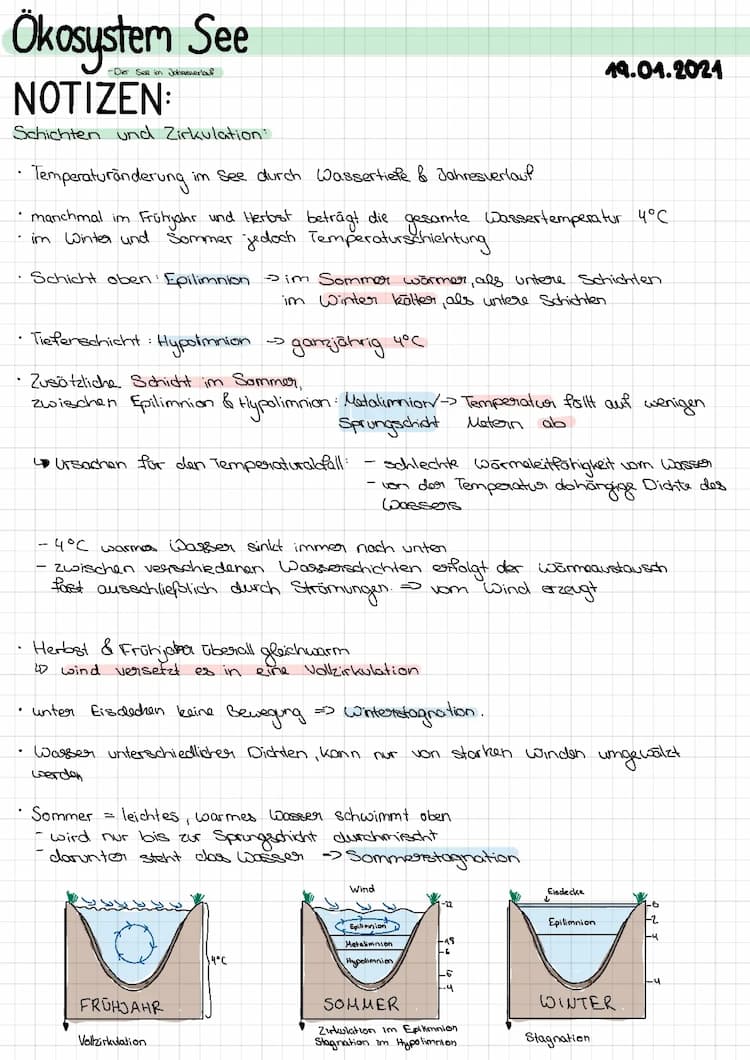 Ökosystem See
- Der See im Jahresverlauf
19.01.2021
NOTIZEN:
Schichten und Zirkulation:
· Temperaturänderung im See durch Wassertiefe & Jahresverlauf
· manchmal im Frühjahr und Herbst beträgt die gesamte Wassertemperatur 4°C
· im Winter und Sommer jedoch Temperaturschichtung
· Schicht oben: Epilimnion -> im Sommer wärmer, als untere Schichten
im Winter kälter, als untere Schichten
· Tiefenschicht: Hypolimnion -> ganzjährig 4°C
· Zusätzliche Schicht im Sommer,
zwischen Epilimnion & Hypolimnion: Metalimnion/ -> Temperatur fällt auf wenigen
Sprungschicht Metern ab
↳ Ursachen für den Temperaturabfall: - schlechte Wärmeleitfähigkeit vom Wasser
- von der Temperatur abhängige Dichte des
Wassers
- 4°C warmes Wasser sinkt immer nach unten
- zwischen verschiedenen Wasserschichten erfolgt der Wärmeaustausch
fast ausschließlich durch Strömungen. => vom Wind erzeugt
· Herbst & Frühjahr überall gleichwarm
↳ wind versetzt es in eine Vollzirkulation
· unter Eisdecken keine Bewegung => Winterstagnation.
· Wasser unterschiedlicher Dichten, kann nur von starken Winden umgewälzt
werden
· Sommer = leichtes, warmes Wasser schwimmt oben
- wird nur bis zur Sprungschicht durchmischt
- darunter steht das Wasser -> Sommerstagnation
4°C
FRÜHJAHR
Vollzirkulation
Wind
Epilimnion
Metalimnion
Hypolimnion
SOMMER
Zirkulation im Epilimnion
Stagnation im Hypolimnion
Eisdecke
Epilimnion
-2
-4
-4
WINTER
Stagnation